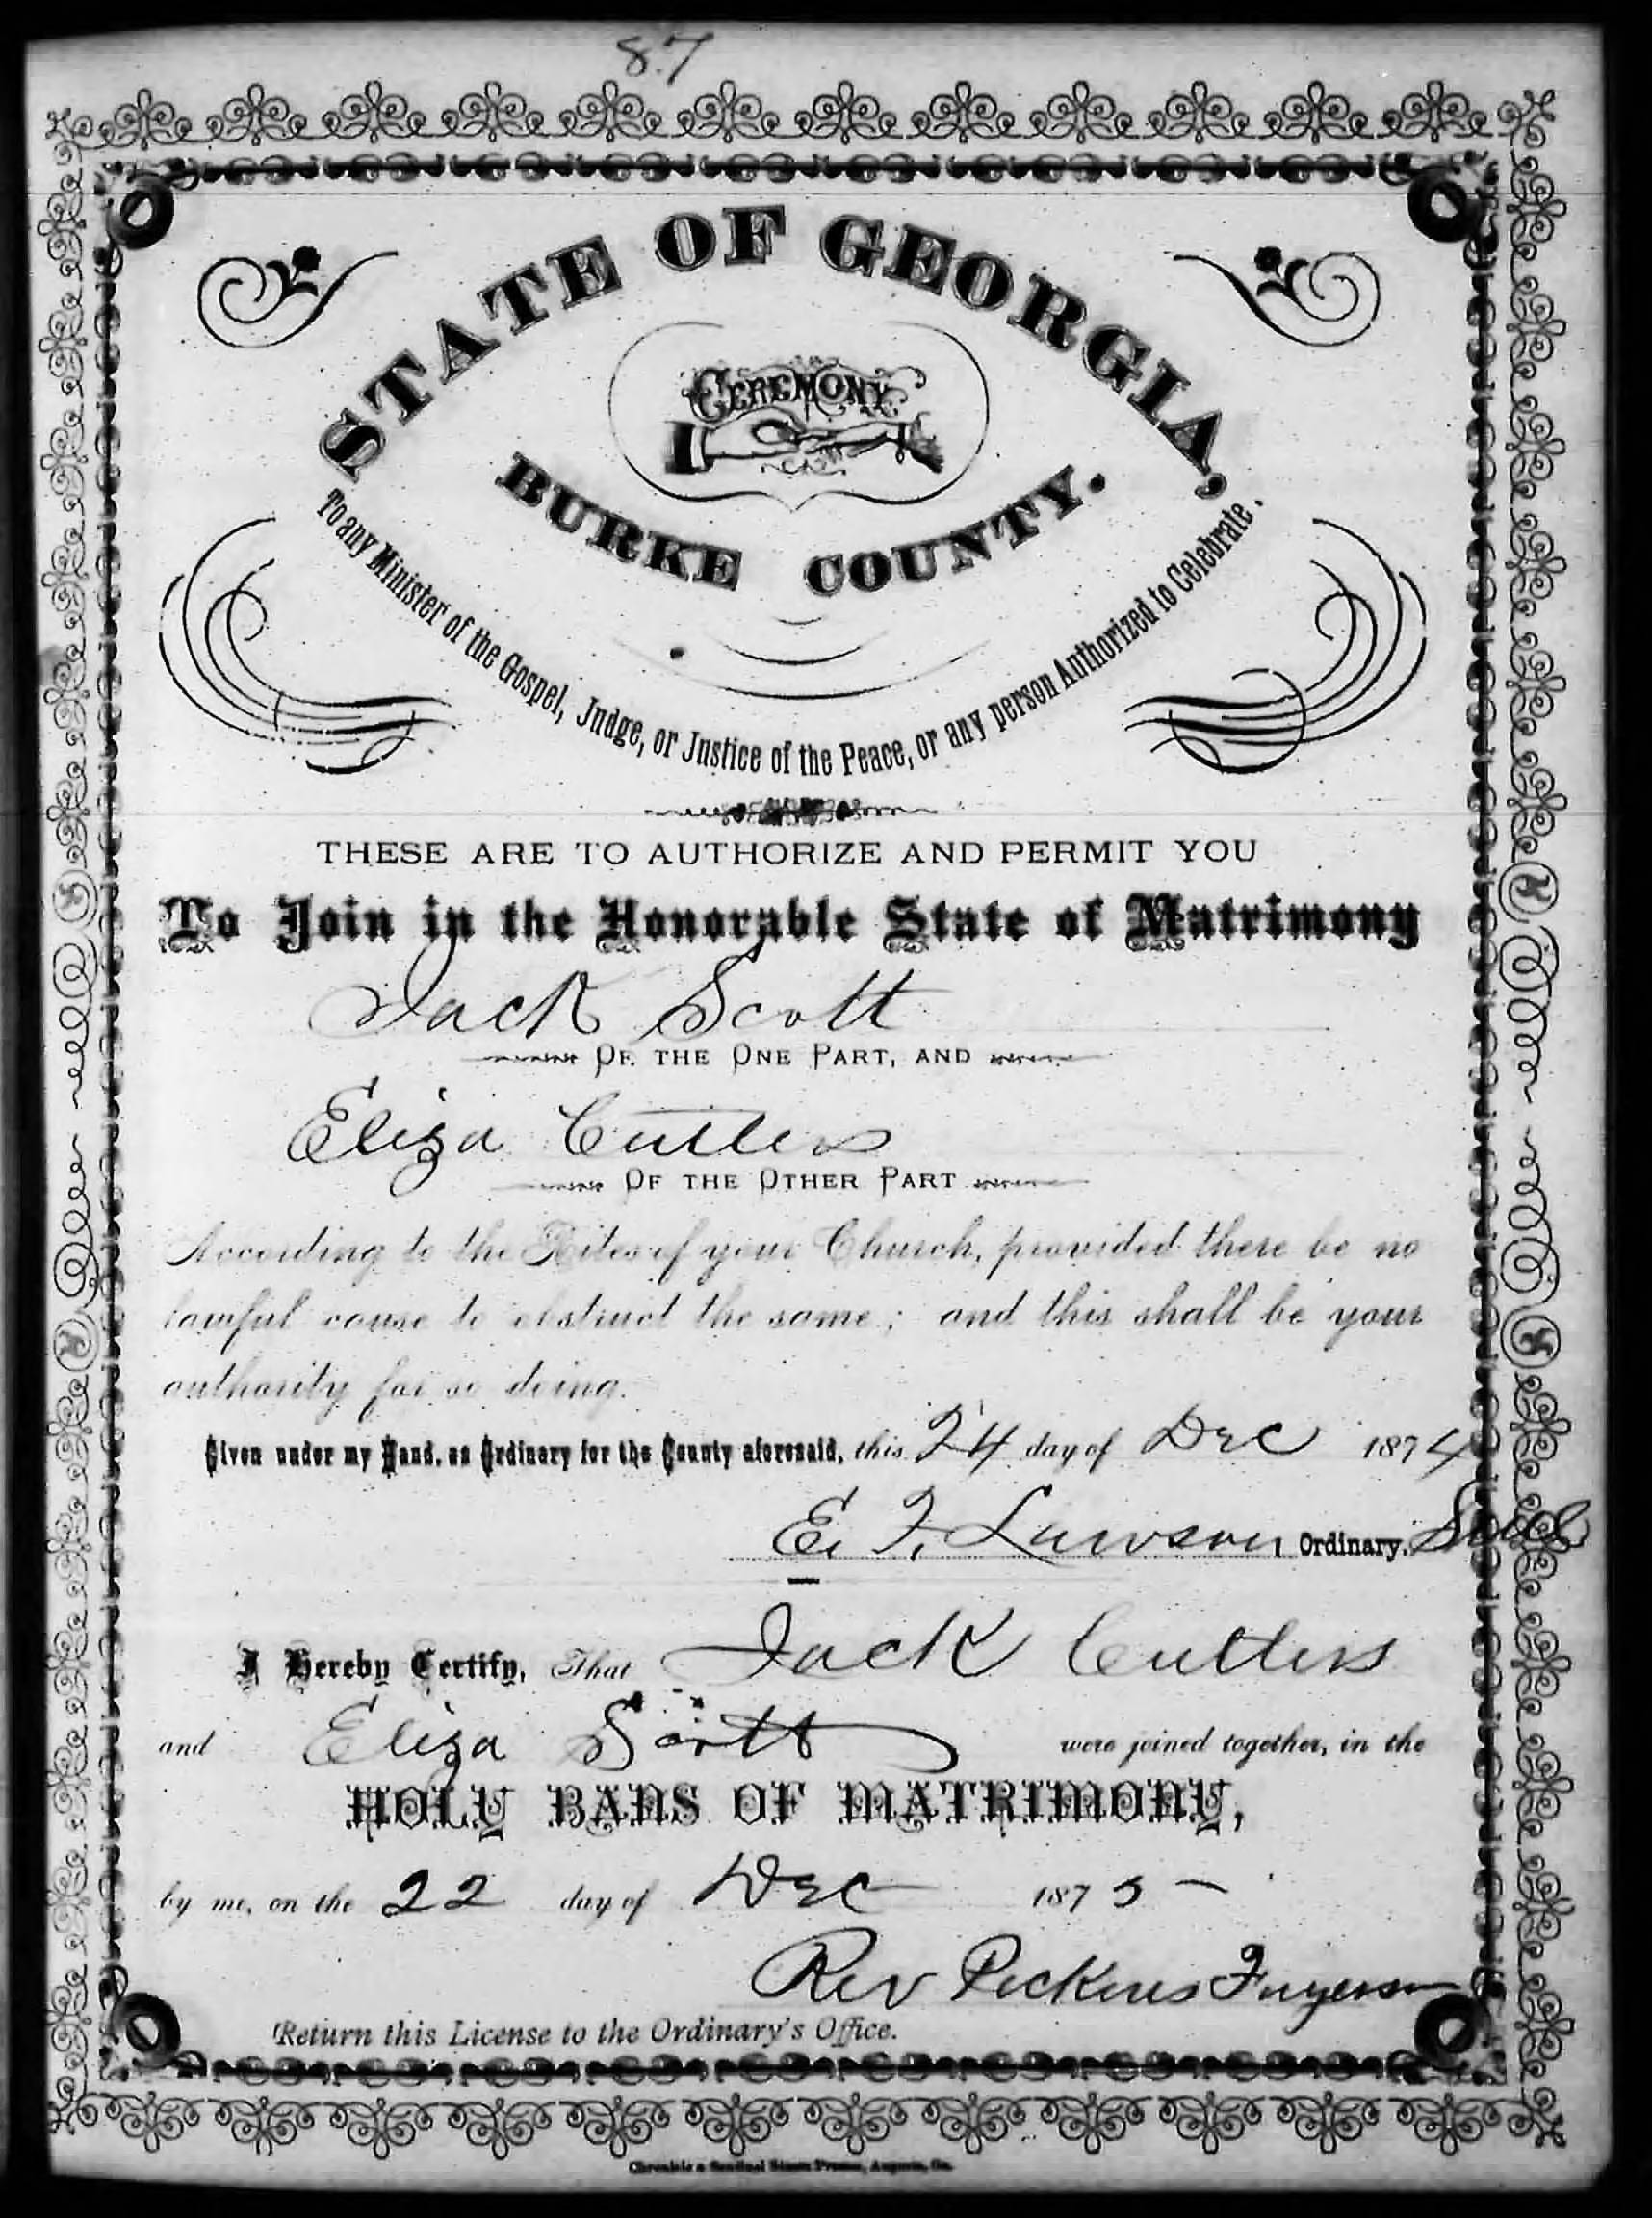 87
STATE OF GEORGIA,
CEREMONY
BURKE COUNTY.
To any Minister of the Gospel, Judge, or Justice of the Peace, or any person Authorized to Celebrate.
THESE ARE TO AUTHORIZE AND PERMIT YOU
To Join in the Honorable State of Matrimony
Jack Scott
OF THE ONE PART, AND
Eliza Cutlers
OF THE OTHER PART
According to the Rites of your Church, provided there be no
lawful cause to obstruct the same; and this shall be your
authority for so doing.
Given under my Hand, as Ordinary for the County aforesaid, this 24 day of Dec 1874
E. F. Lawson Ordinary. Seal
I Hereby Certify, That Jack Cutlers
and Eliza Scott were joined together, in the
HOLY BANS OF MATRIMONY,
by me, on the 22 day of Dec 1875
Rev Pickens
Return this License to the Ordinary's Office.
Chronicle & Sentinel Steam Presses, Augusta, Ga.